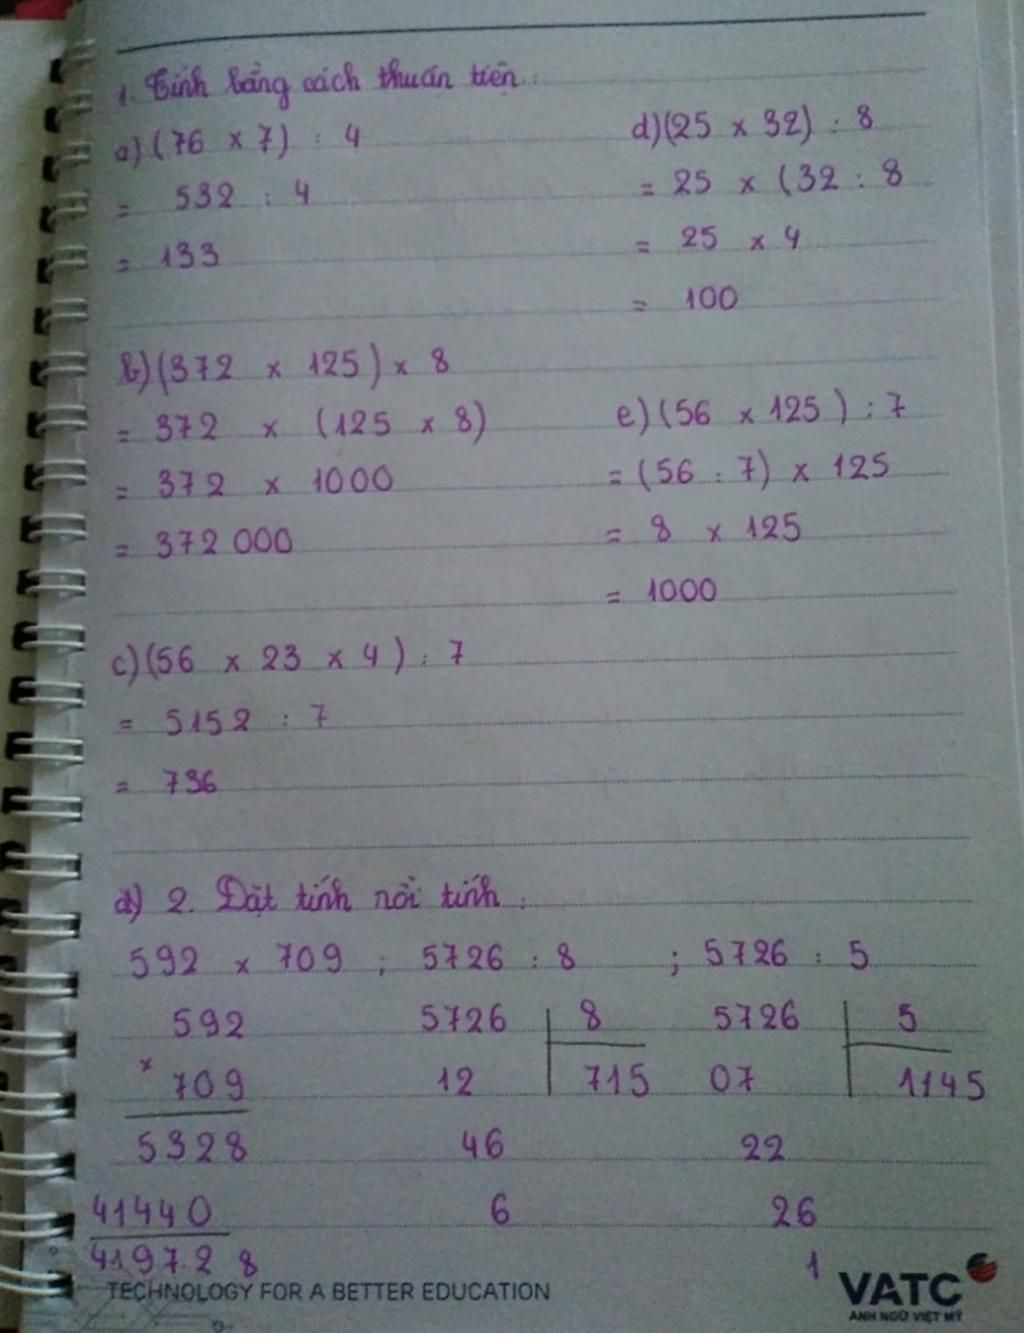 1. Tính bằng cách thuận tiện:
a) (76 x 7) : 4
= 532 : 4
= 133
d) (25 x 32) : 8
= 25 x (32 : 8
= 25 x 4
= 100
b) (372 x 125) x 8
= 372 x (125 x 8)
= 372 x 1000
= 372 000
e) (56 x 125) : 7
= (56 : 7) x 125
= 8 x 125
= 1000
c) (56 x 23 x 4) : 7
= 5152 : 7
= 736
d) 2. Đặt tính rồi tính:
592 x 709 ; 5726 : 8 ; 5726 : 5
592 5726 8 5726 5
x
709 12 715 07 1145
5328 46 22
41440 6 26
41972 8 1
TECHNOLOGY FOR A BETTER EDUCATION
VATC
ANH NGỮ VIỆT MỸ